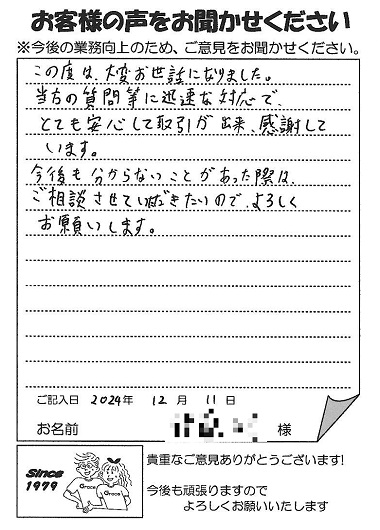 お客様の声をお聞かせください
※今後の業務向上のため、ご意見をお聞かせください。
この度は、大変お世話になりました。
当方の質問等に迅速な対応で、
とても安心して取引が出来、感謝して
います。
今後も分からないことがあった際は、
ご相談させていただきたいので、よろしく
お願いします。
ご記入日 2024年 12月 11日
お名前 様
Since
1979
Grace
Grace
貴重なご意見ありがとうございます!
今後も頑張りますので
よろしくお願いいたします